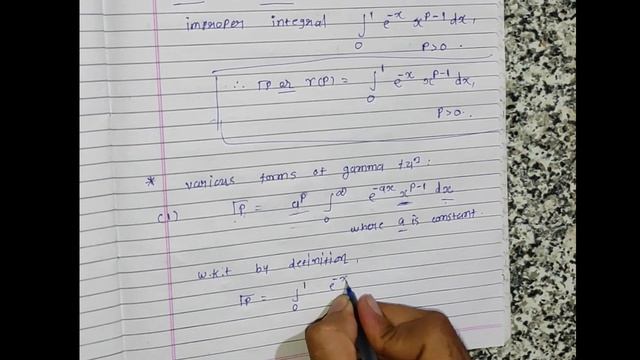 improper integral ∫₀¹ e⁻ˣ xᵖ⁻¹ dx,
P>0.
∴ Γp or r(P) = ∫₀¹ e⁻ˣ xᵖ⁻¹ dx,
P>0.
* various forms of gamma fuⁿ.
(1) Γp = aᵖ ∫₀^∞ e⁻ᵃˣ xᵖ⁻¹ dx
where a is constant.
w.k.t by definition,
Γp = ∫₀¹ e⁻ˣ